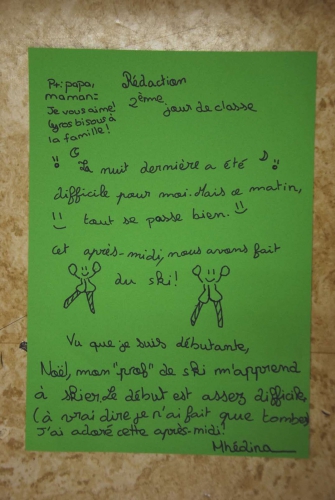 Pr: papa,
maman:
Je vous aime!
Gros bisous à
la famille!
Rédaction
2ème
jour de classe
La nuit dernière a été
difficile pour moi. Mais ce matin,
tout se passe bien.
Cet après-midi, nous avons fait
du ski!
Vu que je suis débutante,
Noël, mon "prof" de ski m'apprend
à skier. Le début est assez difficile
(à vrai dire je n'ai fait que tomber
J'ai adoré cette après-midi!
Mhédina